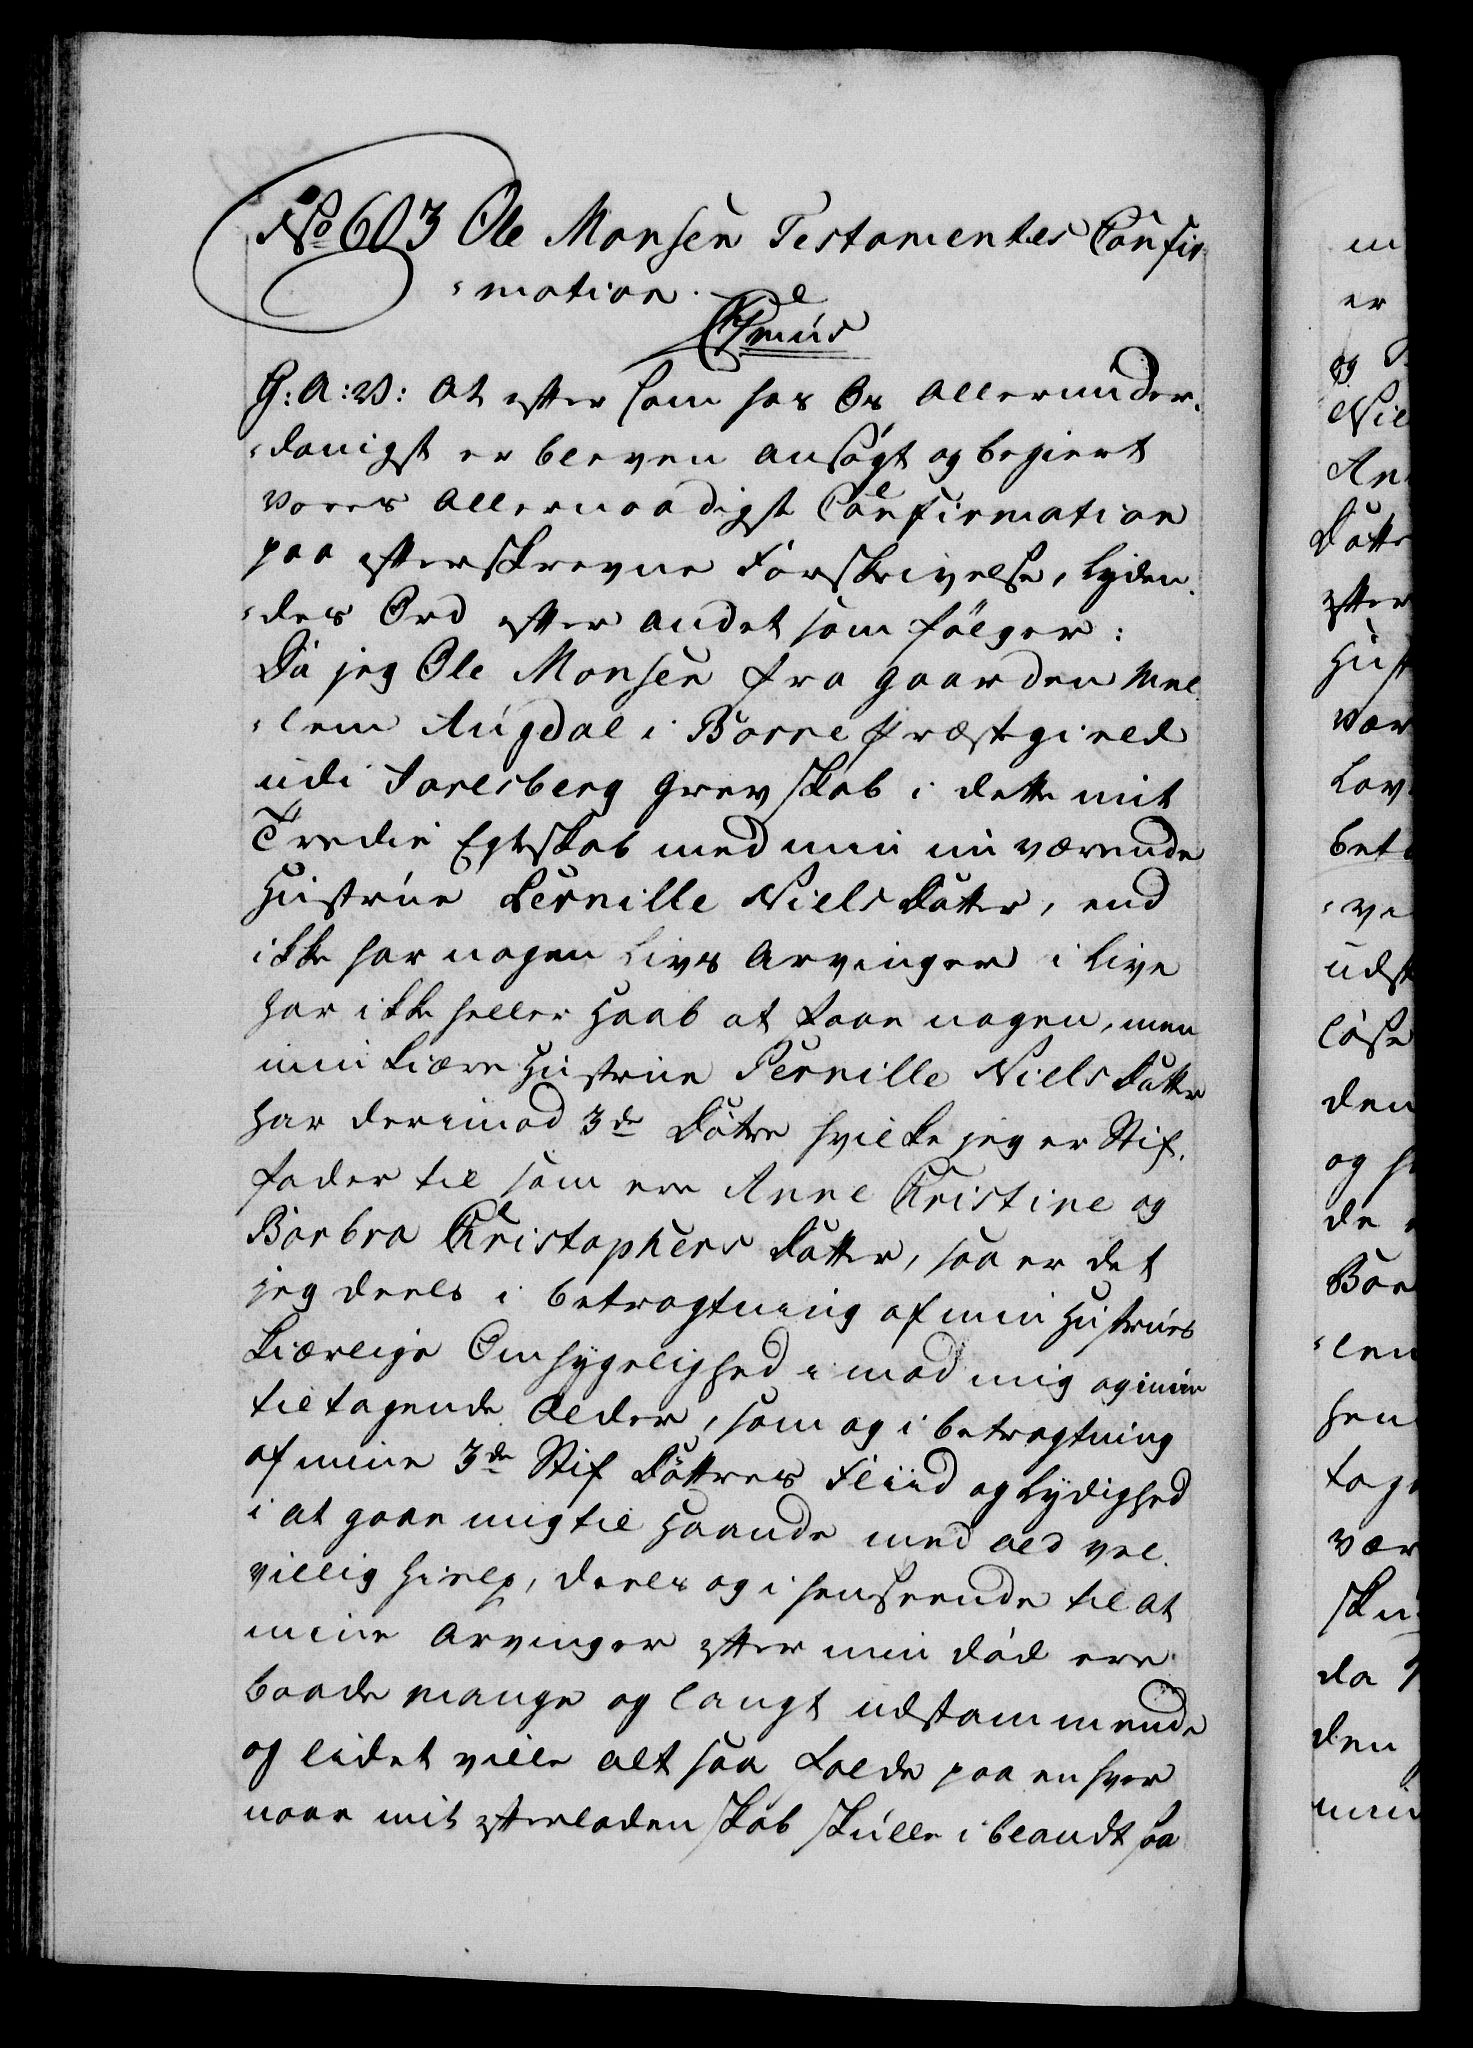 No 603 Ole Monsen Testamentes Confir
-mation.
G: A: V: At efter som hos Os Allerunder-
-danigst er bleven ansøgt og begiert
Vores Allernaadigst Confirmation
paa efterskrevne Forskrivelse, Lyden-
-des Ord efter andet som følger:
Da jeg Ole Monsen fra gaarden Mel-
-lem Augdal i Borre Præstegield
udi Jarlsberg Grevskab i dette mit
Tredie Egteskab med min nu værende
Hustrue Pernille Niels Datter, end
ikke har nogen Livs Arvinger i Live
har ikke heller Haab at faae nogen, men
min kiære Hustrue Pernille Niels Datter
har derimod 3de Døtre hvilke jeg er Stif-
fader til som ere Anne Kristine og
Barbra Kristophers Datter, saa er det
jeg deels i betragtning af min Hustrues
kiærlige Omhyggelighed imod mig og min
tiltagende Alder, som og i betragtning
af mine 3de Stif Døttres Fliid og Lydighed
i at gaae mig til Haande med ald vel-
villig Hielp, deels og i henseende til at
mine Arvinger efter min død ere
baade mange og langt udstammende
og lidet ville alt saa falde paa en hver
naar mit efterladenskab skulle iblandt saa
m
er
og
Niel
An
Datte
efter
Hust
Vær
Lov
bet
-ve
udst
løse
den
og h
de
Bar
-len
hen
tage
vær
sku
da
den
min